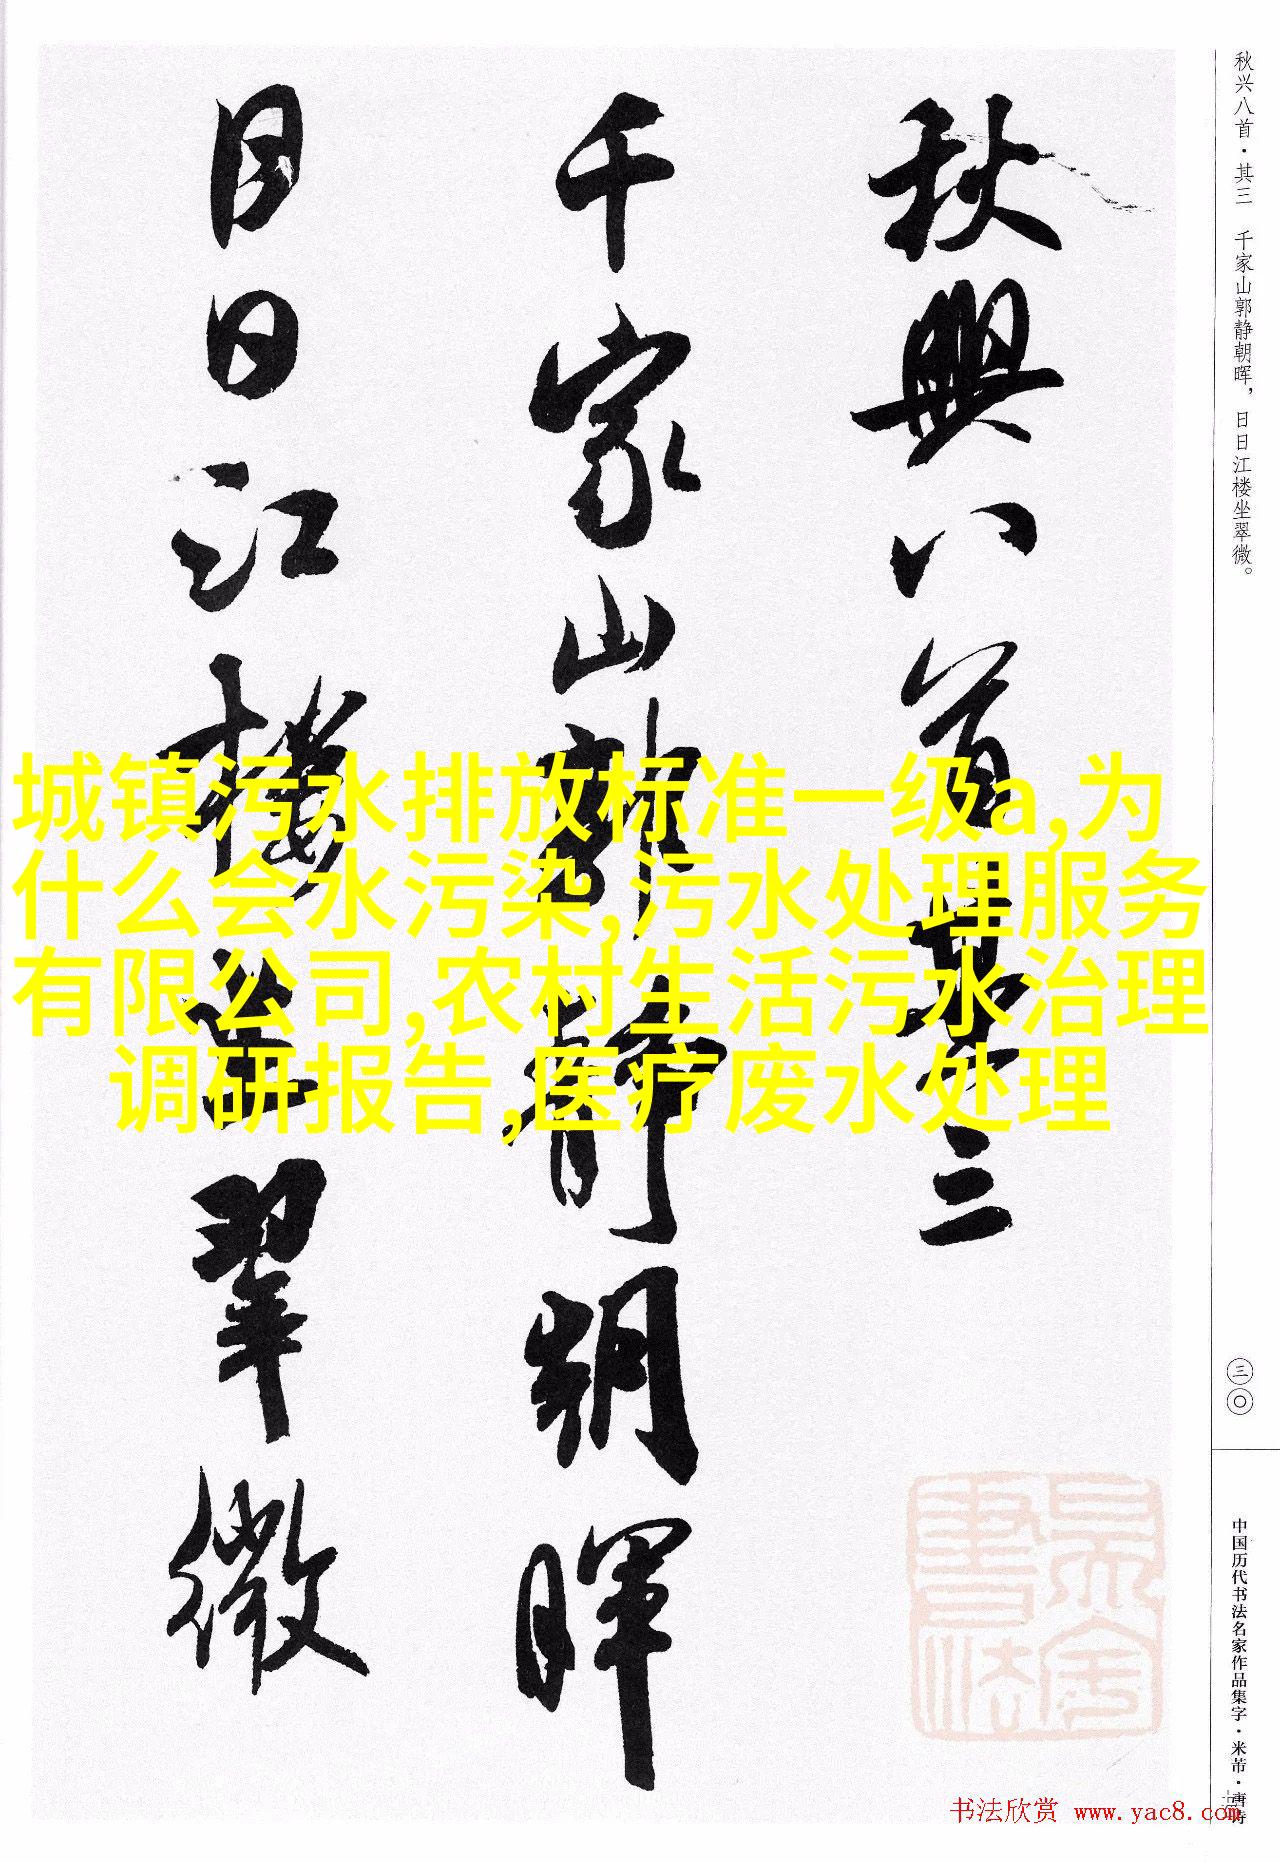 秋興八首其三
千家山郭靜朝暉
日日江樓坐翠微
秋兴八首·其三　千家山郭静朝晖，日日江楼坐翠微。
城镇污水排放标准一级a,为
什么会水污染,污水处理服务
有限公司,农村生活污水治理
调研报告,医疗废水处理
三〇
中国历代书法名家作品集字·米芾·唐诗
书法欣赏 www.yac8.com